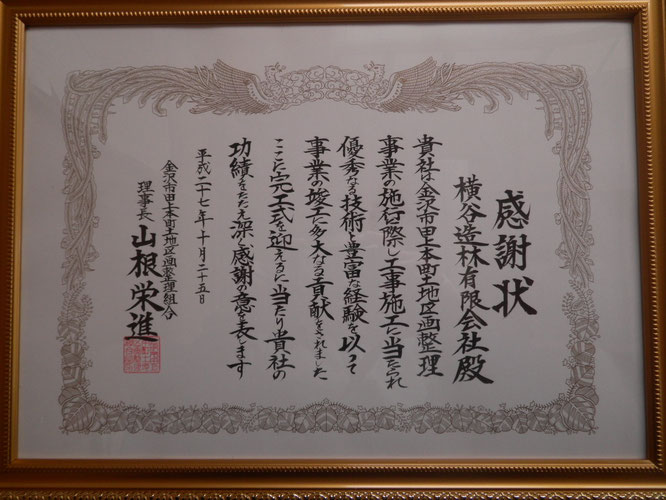 感謝状
横谷造林有限会社殿
貴社は金沢市田上本町土地区画整理
事業の施行に際し工事施工に当たられ
優秀なる技術と豊富な経験を以って
事業の竣工に多大なる貢献をされました
ここに完工式を迎えるに当たり貴社の
功績をたたえ深く感謝の意を表します
平成二十七年十月二十五日
金沢市田上本町土地区画整理組合
理事長 山根栄進